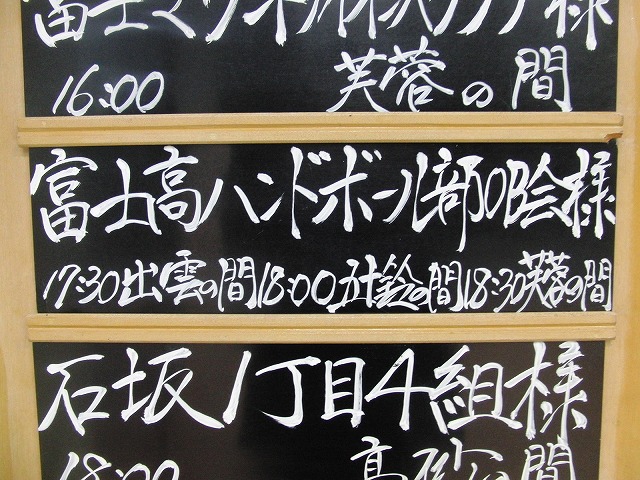 富士マリンプール
様
16:00 芙蓉の間
富士高ハンドボール部OB会様
17:30出雲の間18:00五十鈴の間18:30芙蓉の間
石坂1丁目4組様
18:00 高砂の間